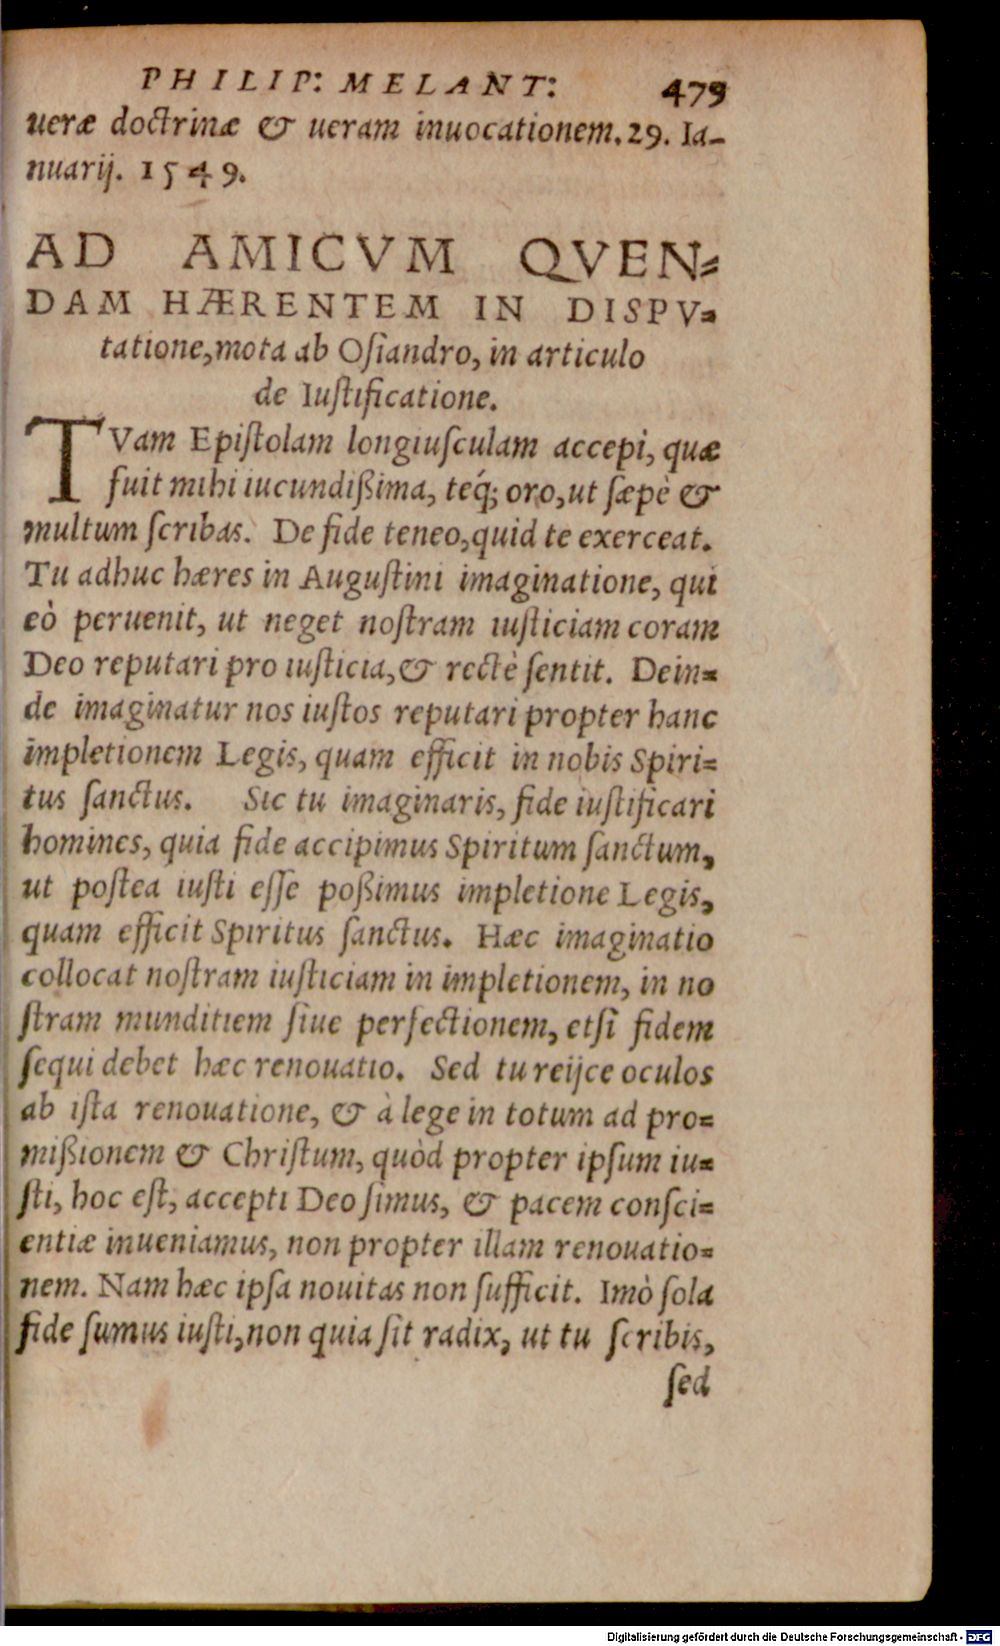 PHILIP: MELANT: 479
ueræ doctrinæ & ueram inuocationem. 29. Ia-
nuarij. 1549.
AD AMICVM QVEN=
DAM HÆRENTEM IN DISPV=
tatione, mota ab Osiandro, in articulo
de Iustificatione.
TVam Epistolam longiusculam accepi, quæ
fuit mihi iucundißima, teq́; oro, ut sæpè &
multum scribas. De fide teneo, quid te exerceat.
Tu adhuc hæres in Augustini imaginatione, qui
eò peruenit, ut neget nostram iusticiam coram
Deo reputari pro iusticia, & rectè sentit. Dein=
de imaginatur nos iustos reputari propter hanc
impletionem Legis, quam efficit in nobis Spiri=
tus sanctus. Sic tu imaginaris, fide iustificari
homines, quia fide accipimus Spiritum sanctum,
ut postea iusti esse poßimus impletione Legis,
quam efficit Spiritus sanctus. Hæc imaginatio
collocat nostram iusticiam in impletionem, in no
stram munditiem siue perfectionem, etsi fidem
sequi debet hæc renouatio. Sed tu reijce oculos
ab ista renouatione, & à lege in totum ad pro=
mißionem & Christum, quòd propter ipsum iu=
sti, hoc est, accepti Deo simus, & pacem consci=
entiæ inueniamus, non propter illam renouatio=
nem. Nam hæc ipsa nouitas non sufficit. Imò sola
fide sumus iusti, non quia sit radix, ut tu scribis,
sed
Digitalisierung gefördert durch die Deutsche Forschungsgemeinschaft - DFG